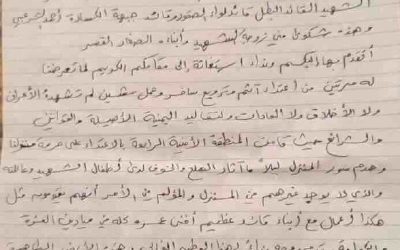 الشهيد القائد البطل قائد لواء الصقور وقائد جبهة الكسارة أحمد الشرعبي
وهذه شكوى من زوجة الشهيد وأبناءه الصغار القصر
أتقدم بها إليكم ونداء استغاثة إلى مقامكم الكريم لما تعرضنا
له مرتين من اعتداء آثم وترويع سافر وعمل مشين لم تشهده الأعراف
ولا الأخلاق ولا العادات والتقاليد اليمنية الأصيلة والقوانين
والشرائع حيث قامت المنطقة الأمنية الرابعة بالاعتداء على حرمة منزلنا
وهدم سور المنزل ليلاً مما أثار الهلع والخوف لدى أطفال الشهيد وعائلته
والذي لا يوجد غيرهم من المنزل والمؤلم في الأمر أنهم يقومون بمثل
هكذا أعمال مع أبناء قائد عظيم أفنى عمره كله في ميادين العزة
لهذا الوطن الغالي